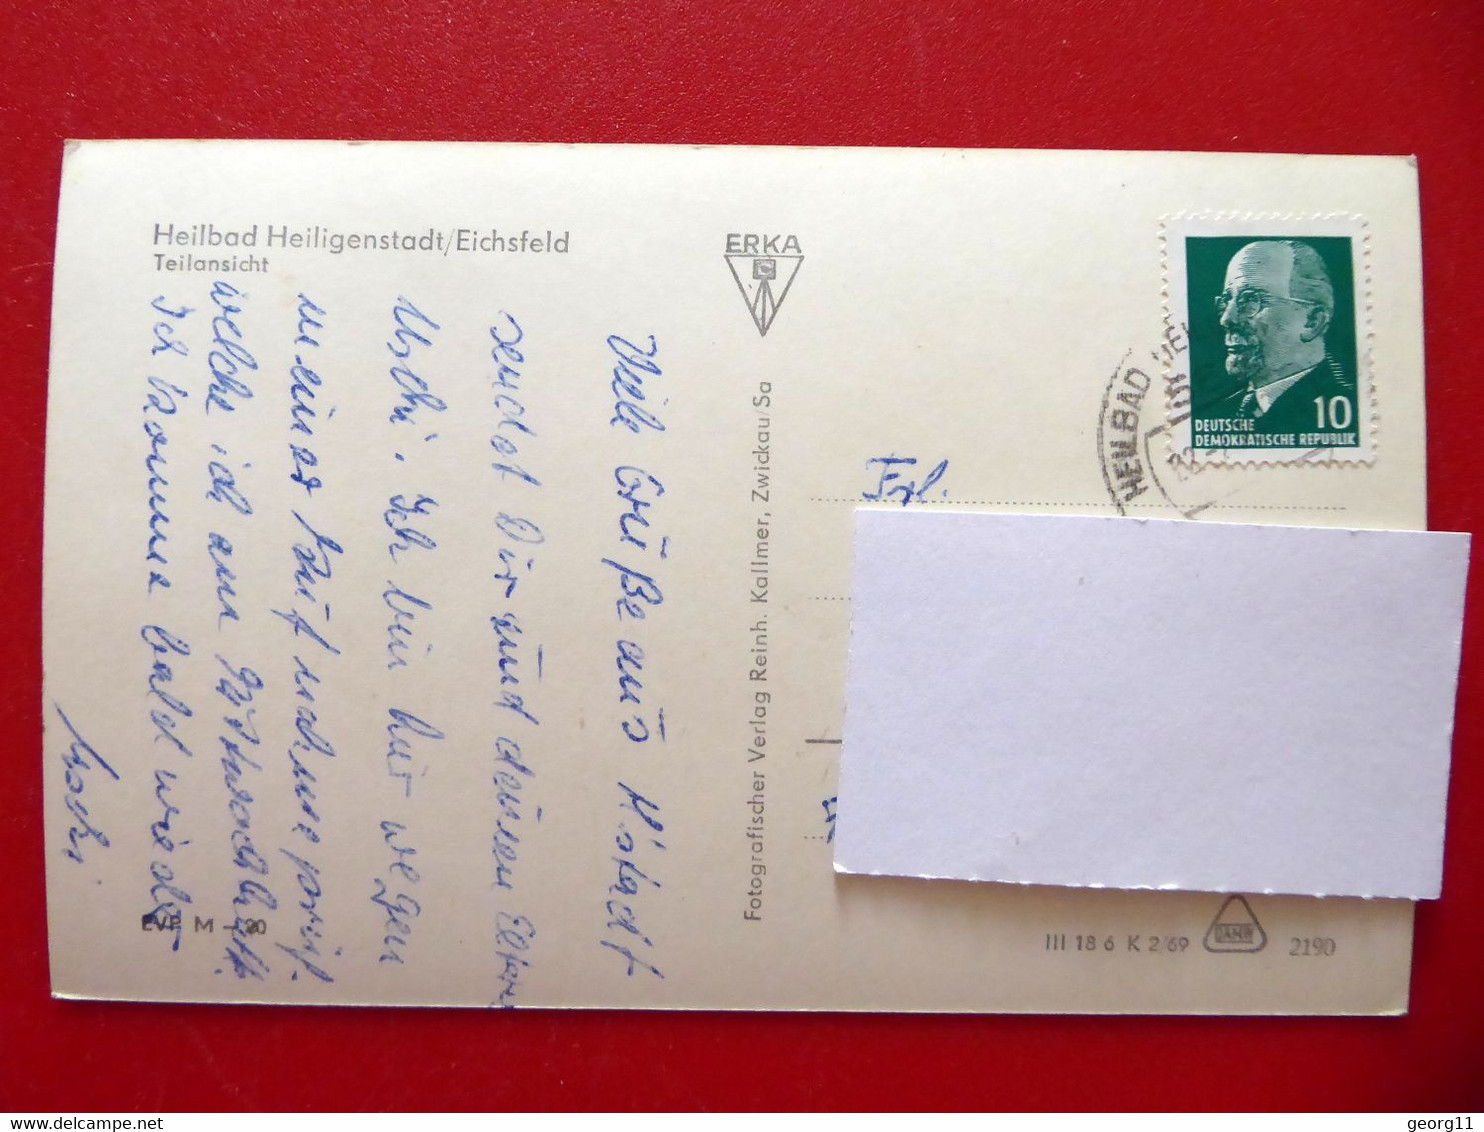 Heilbad Heiligenstadt/Eichsfeld
Teilansicht
ERKA
Viele Grüße aus H'stadt
sendet Dir und deinen Eltern
Uschi. Ich bin hier wegen
meiner
welche ich am
Ich komme bald wieder
Uschi
EVP M -,20
Fotografischer Verlag Reinh. Kallmer, Zwickau/Sa
HEILBAD HEI
22
10
DEUTSCHE
DEMOKRATISCHE REPUBLIK
Frl.
III 18 6 K 2/69
2190
Delcampe.net
georg11